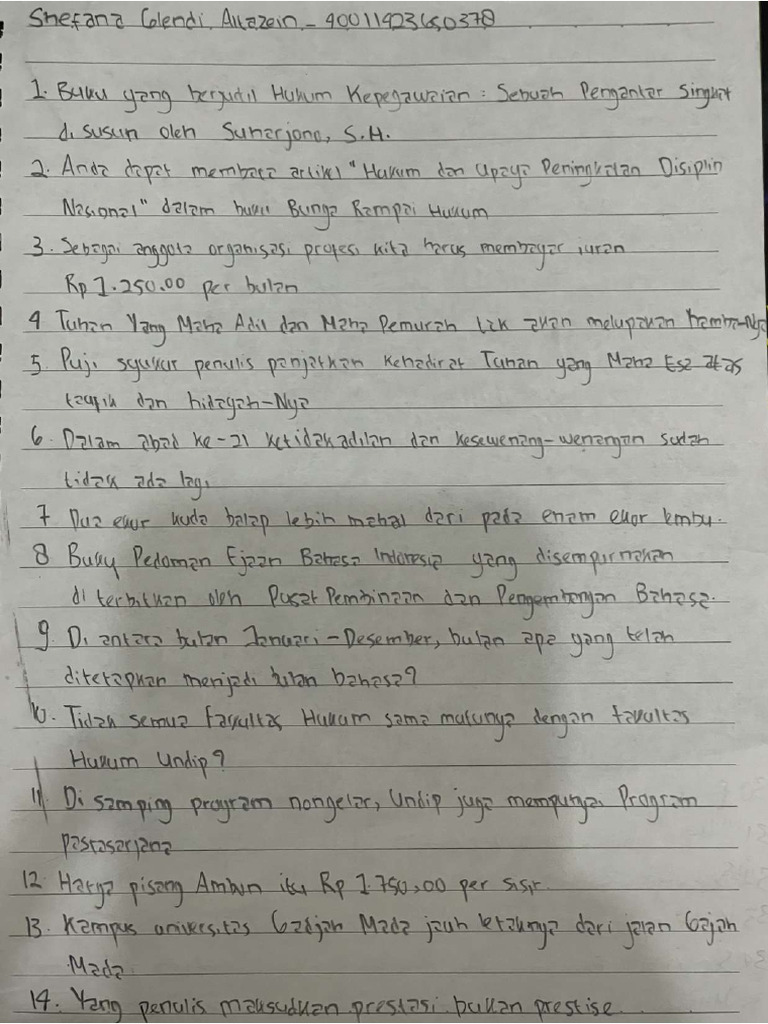 Shefana Glendi Alkazein - 40011423650378
1. Buku yang berjudul Hukum Kepegawaian : Sebuah Pengantar Singkat
di susun oleh Suharjono, S.H.
2. Anda dapat membaca artikel "Hukum dan Upaya Peningkatan Disiplin
Nasional" dalam buku Bunga Rampai Hukum
3. Sebagai anggota organisasi profesi kita harus membayar iuran
Rp 1.250.00 per bulan
4 Tuhan Yang Maha Adil dan Maha Pemurah tak akan melupakan hamba-Nya
5. Puji syukur penulis panjatkan kehadirat Tuhan yang Maha Esa atas
taufik dan hidayah-Nya
6. Dalam abad ke-21 ketidakadilan dan kesewenang-wenangan sudah
tidak ada lagi
7 Dua ekor kuda balap lebih mahal dari pada enam ekor lembu.
8 Buku Pedoman Ejaan Bahasa Indonesia yang disempurnakan
di terbitkan oleh Pusat Pembinaan dan Pengembangan Bahasa.
9. Di antara bulan Januari - Desember, bulan apa yang telah
ditetapkan menjadi bulan bahasa?
10. Tidak semua fakultas Hukum sama mutunya dengan fakultas
Hukum Undip?
11. Di samping program nongelar, Undip juga mempunyai Program
pascasarjana
12 Harga pisang Ambon itu Rp 1.750,00 per sisir.
13. Kampus universitas Gadjah Mada jauh letaknya dari jalan Gajah
Mada.
14. Yang penulis maksudkan prestasi bukan prestise.